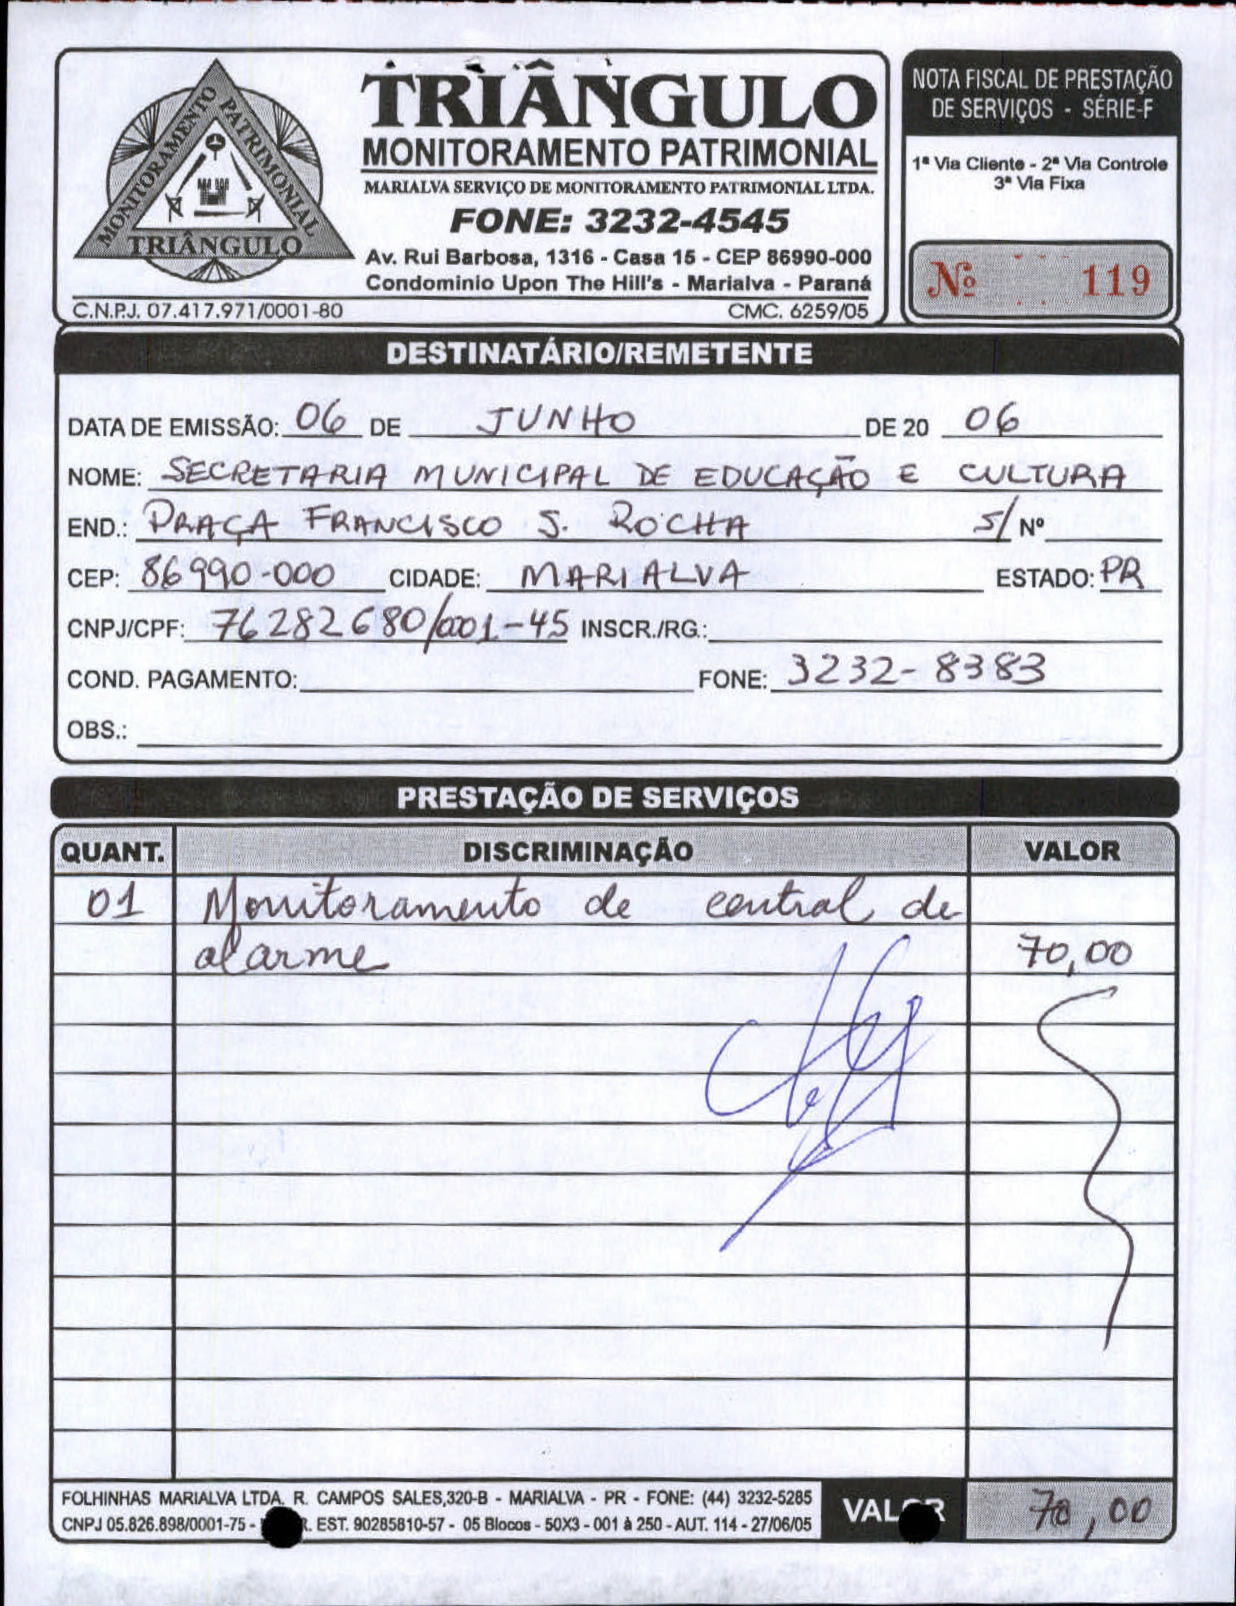 MONITORAMENTO PATRIMONIAL
TRIÂNGULO
C.N.P.J. 07.417.971/0001-80
TRIÂNGULO
MONITORAMENTO PATRIMONIAL
MARIALVA SERVIÇO DE MONITORAMENTO PATRIMONIAL LTDA.
FONE: 3232-4545
Av. Rui Barbosa, 1316 - Casa 15 - CEP 86990-000
Condominio Upon The Hill's - Marialva - Paraná
CMC. 6259/05
NOTA FISCAL DE PRESTAÇÃO
DE SERVIÇOS - SÉRIE-F
1ª Via Cliente - 2ª Via Controle
3ª Via Fixa
Nº 119
DESTINATÁRIO/REMETENTE
DATA DE EMISSÃO: 06 DE JUNHO DE 20 06
NOME: SECRETARIA MUNICIPAL DE EDUCAÇÃO E CULTURA
END.: PRAÇA FRANCISCO J. ROCHA S/ Nº
CEP: 86990-000 CIDADE: MARIALVA ESTADO: PR
CNPJ/CPF: 76282680/0001-45 INSCR./RG.:
COND. PAGAMENTO: FONE: 3232-8383
OBS.:
PRESTAÇÃO DE SERVIÇOS
QUANT. DISCRIMINAÇÃO VALOR
01 Monitoramento de central de
alarme 70,00
FOLHINHAS MARIALVA LTDA. R. CAMPOS SALES,320-B - MARIALVA - PR - FONE: (44) 3232-5285
CNPJ 05.826.898/0001-75 - EST. 90285810-57 - 05 Blocos - 50X3 - 001 à 250 - AUT. 114 - 27/06/05
VALOR 70,00